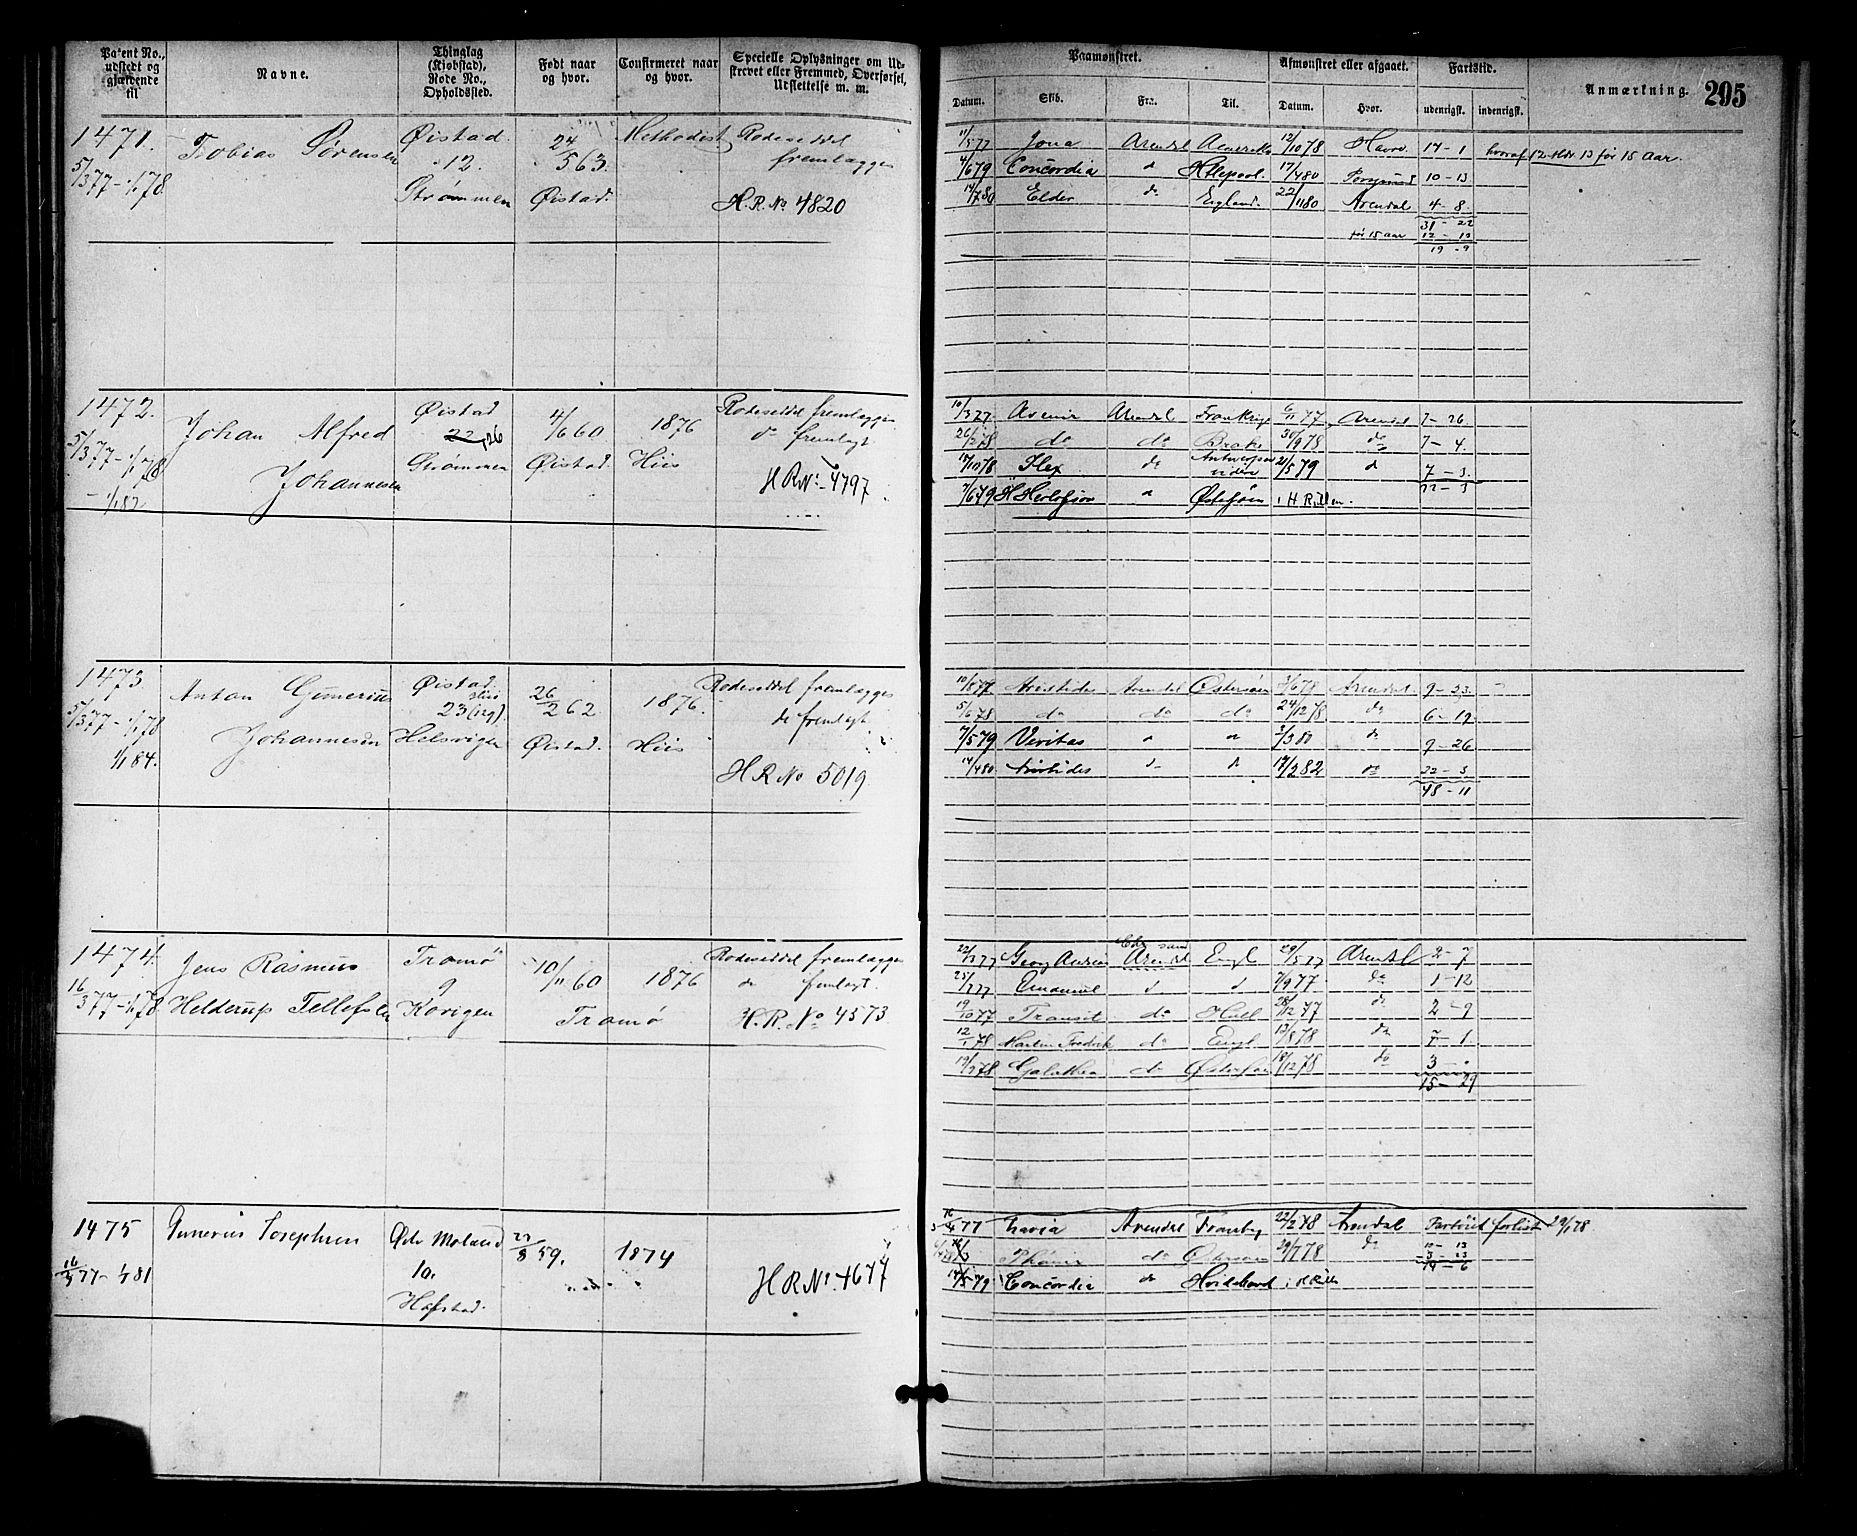 Patent No., udstedt og gjældende til
Navne.
Thinglag (Kjøbstad), Rode No., Opholdssted.
Født naar og hvor.
Confirmeret naar og hvor.
Specielle Oplysninger om Udskrevet eller Fremmed, Overførsel, Udslettelse m. m.
Paamønstret.
Afmønstret eller afgaaet.
Fartstid.
Anmærkning.
205
Datum.
Skib.
Fra.
Til.
Datum.
Hvor.
udenrigsk.
indenrigsk.
1471.
5/3 77 - 1/1 78
Tobias Sørensen
Øistad.
12.
Strømmen
24/5 63.
Øistad.
Methodist
Rodeseddel fremlægges
H. R. No 4820
11/5 77 Jona Arendal Amerika 12/10 78 Havre 17 - 1 hvoraf 12 Mdr 13 før 15 Aar.
4/6 79 Concordia do Htlepool. 17/4 80 10 - 13
14/7 80 Elder do England. 22/11 80 Arendal 4 - 8.
31 22
før 15 aar 12 - 13
19 - 9
1472.
5/3 77 - 1/1 78
- 1/1 82
Johan Alfred
Johannesen
Øistad
22, 26
Strømmen
4/6 60
Øistad.
1876
Hiis
Rodeseddel fremlægges
do fremlagt
H R No. 4797
10/3 77. Arendal 6/11 77 Arendal 7 - 26
26/2 78 do do 30/9 78 do 7 - 4.
17/10 78 do Antwerpen videre 21/5 79 do 7 - 3.
22 - 3
7/6 79 H Herlofson do Østersøen i H Rullen.
1473
5/3 77 - 1/1 78
1/1 84.
Anton Gunerius
Johannesen
Øistad
23
Helsvigen
26/2 62
Øistad.
1876.
Hiis
Rodeseddel fremlægges
do fremlagt
H R No 5019
10/5 77 Aristides Arendal Østersøen 3/6 78 Arendal 9 - 23.
5/6 78 do do do 24/12 78 do 6 - 19
7/5 79 Veritas do do 2/3 80 do 9 - 26
14/4 80. Aristides do do 17/2 82 do 22 - 3
48 - 11
1474.
16/3 77 - 1/1 78
Jens Rasmus
Helderup Tellefsen
Tromø
9
Kovigen
10/11 60
Tromø
1876
Rodeseddel fremlægges
do fremlagt.
H. R. No 4573
22/3 77 Georg Arendal Engl 29/5 77 Arendal 2 - 7
Emanuel do do 7/9 77 do 1 - 12
19/10 77 Transit do Hull 28/12 77 do 2 - 9
12/1 78 Martin Fredrik do Engl 13/8 78 do 7 - 1
19/9 78 Galathea do Østersøen 18/12 78 do 3 -
15 - 29
1475
16/3 77 - 1/1 81
Gunerius Josephsen
Østr Moland
10.
Hofstad.
27/8 59.
1874
H R No. 4677
Arendal 22/2 78 Arendal Fartøiet forlist 29/1 78
do Østersøen 29/7 78 do 3 - 13
14 - 6
14/5 79 Concordia do i H Rullen